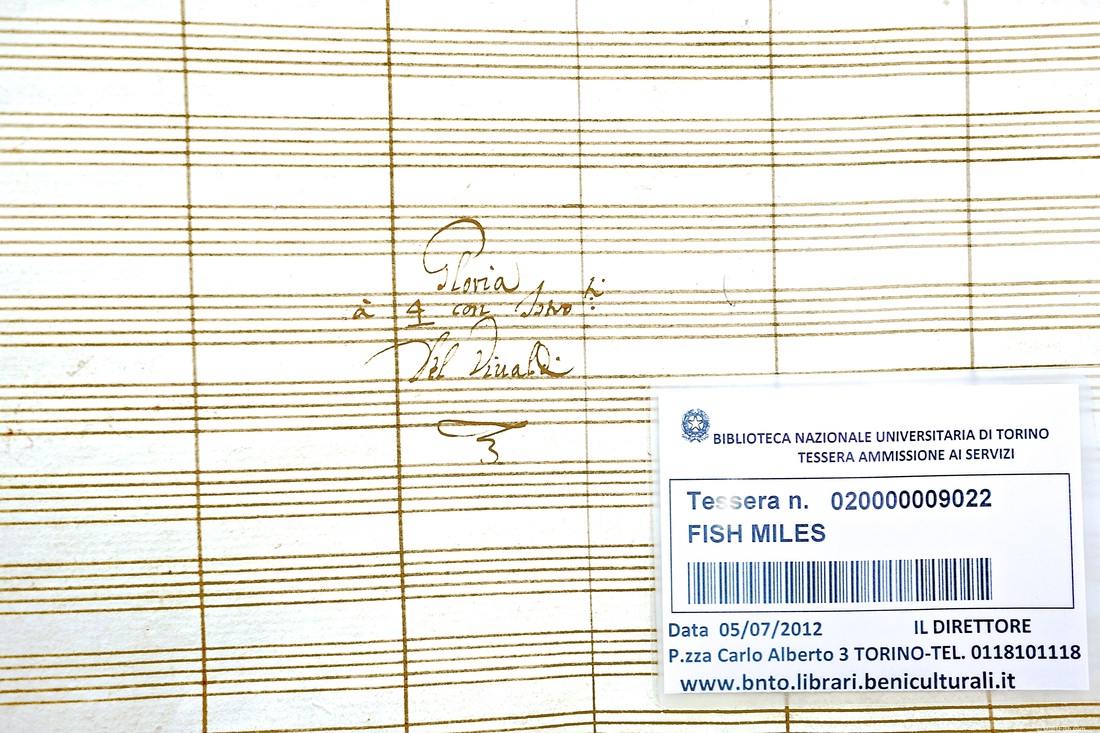 Gloria
à 4 con Istroᵗⁱ:
Del Viualdi
BIBLIOTECA NAZIONALE UNIVERSITARIA DI TORINO
TESSERA AMMISSIONE AI SERVIZI
Tessera n. 020000009022
FISH MILES
Data 05/07/2012 IL DIRETTORE
P.zza Carlo Alberto 3 TORINO-TEL. 0118101118
www.bnto.librari.beniculturali.it